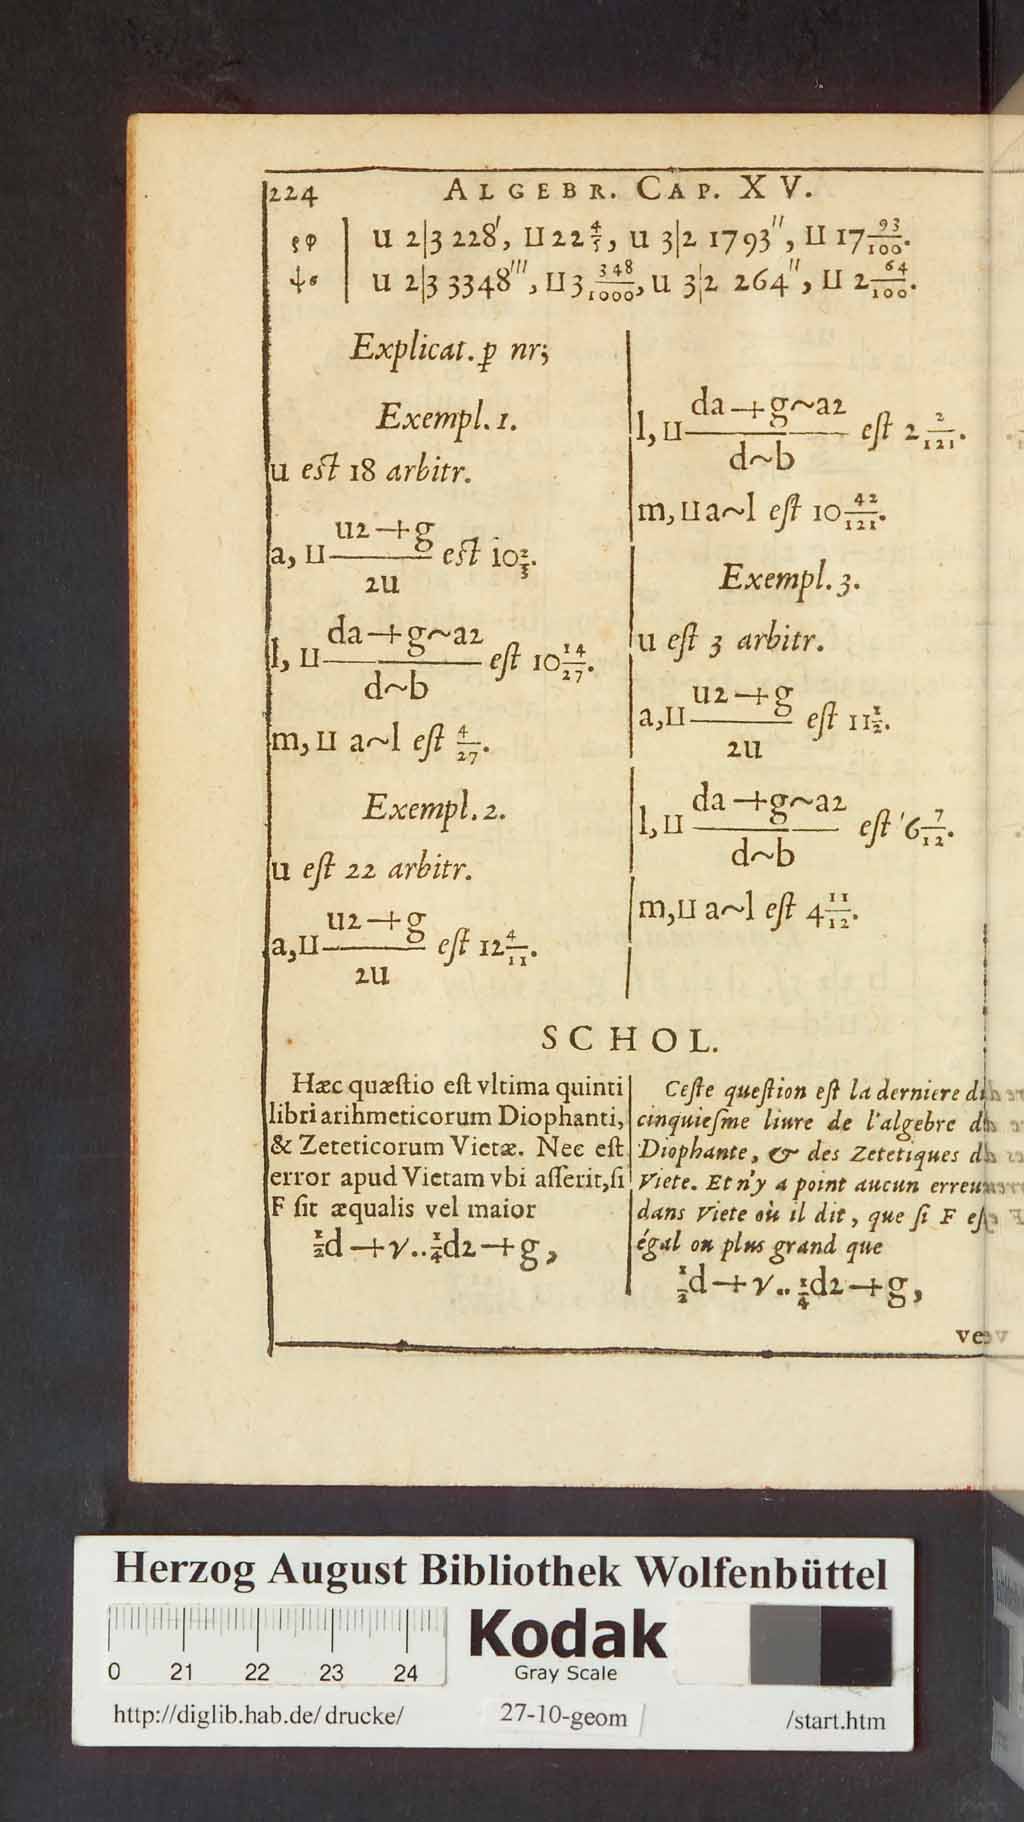 224 ALGEBR. CAP. XV.
ςφ | u 2|3 228′, ⊔ 22 4/5, u 3|2 1793″, ⊔ 17 93/100.
u 2|3 3348‴, ⊔ 3 348/1000, u 3|2 264″, ⊔ 2 64/100.
Explicat. ꝑ nr;
Exempl. 1.
u eſt 18 arbitr.
a, ⊔ (u2+g)/2u eſt 10 2/3.
l, ⊔ (da+g~a2)/(d~b) eſt 10 14/27.
m, ⊔ a~l eſt 4/27.
Exempl. 2.
u eſt 22 arbitr.
a, ⊔ (u2+g)/2u eſt 12 4/11.
l, ⊔ (da+g~a2)/(d~b) eſt 2 2/121.
m, ⊔ a~l eſt 10 42/121.
Exempl. 3.
u eſt 3 arbitr.
a, ⊔ (u2+g)/2u eſt 11 1/2.
l, ⊔ (da+g~a2)/(d~b) eſt 6 7/12.
m, ⊔ a~l eſt 4 11/12.
SCHOL.
Hæc quæſtio eſt vltima quinti
libri arihmeticorum Diophanti,
& Zeteticorum Vietæ. Nec eſt
error apud Vietam vbi aſſerit, ſi
F ſit æqualis vel maior
1/2 d + γ.. 1/4 d2 + g,
Ceſte queſtion eſt la derniere
cinquieſme liure de l'algebre
Diophante, & des Zetetiques
Viete. Et n'y a point aucun erreur
dans Viete où il dit, que ſi F
égal ou plus grand que
1/2 d + γ.. 1/4 d2 + g,
Herzog August Bibliothek Wolfenbüttel
0 21 22 23 24
Kodak
Gray Scale
http://diglib.hab.de/drucke/ 27-10-geom /start.htm